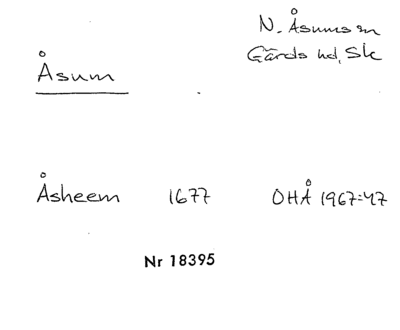 N. Åsums sn
Åsum
Gärds hd, Sk
Åsheem 1677 OHÅ 1967:47
Nr 18395